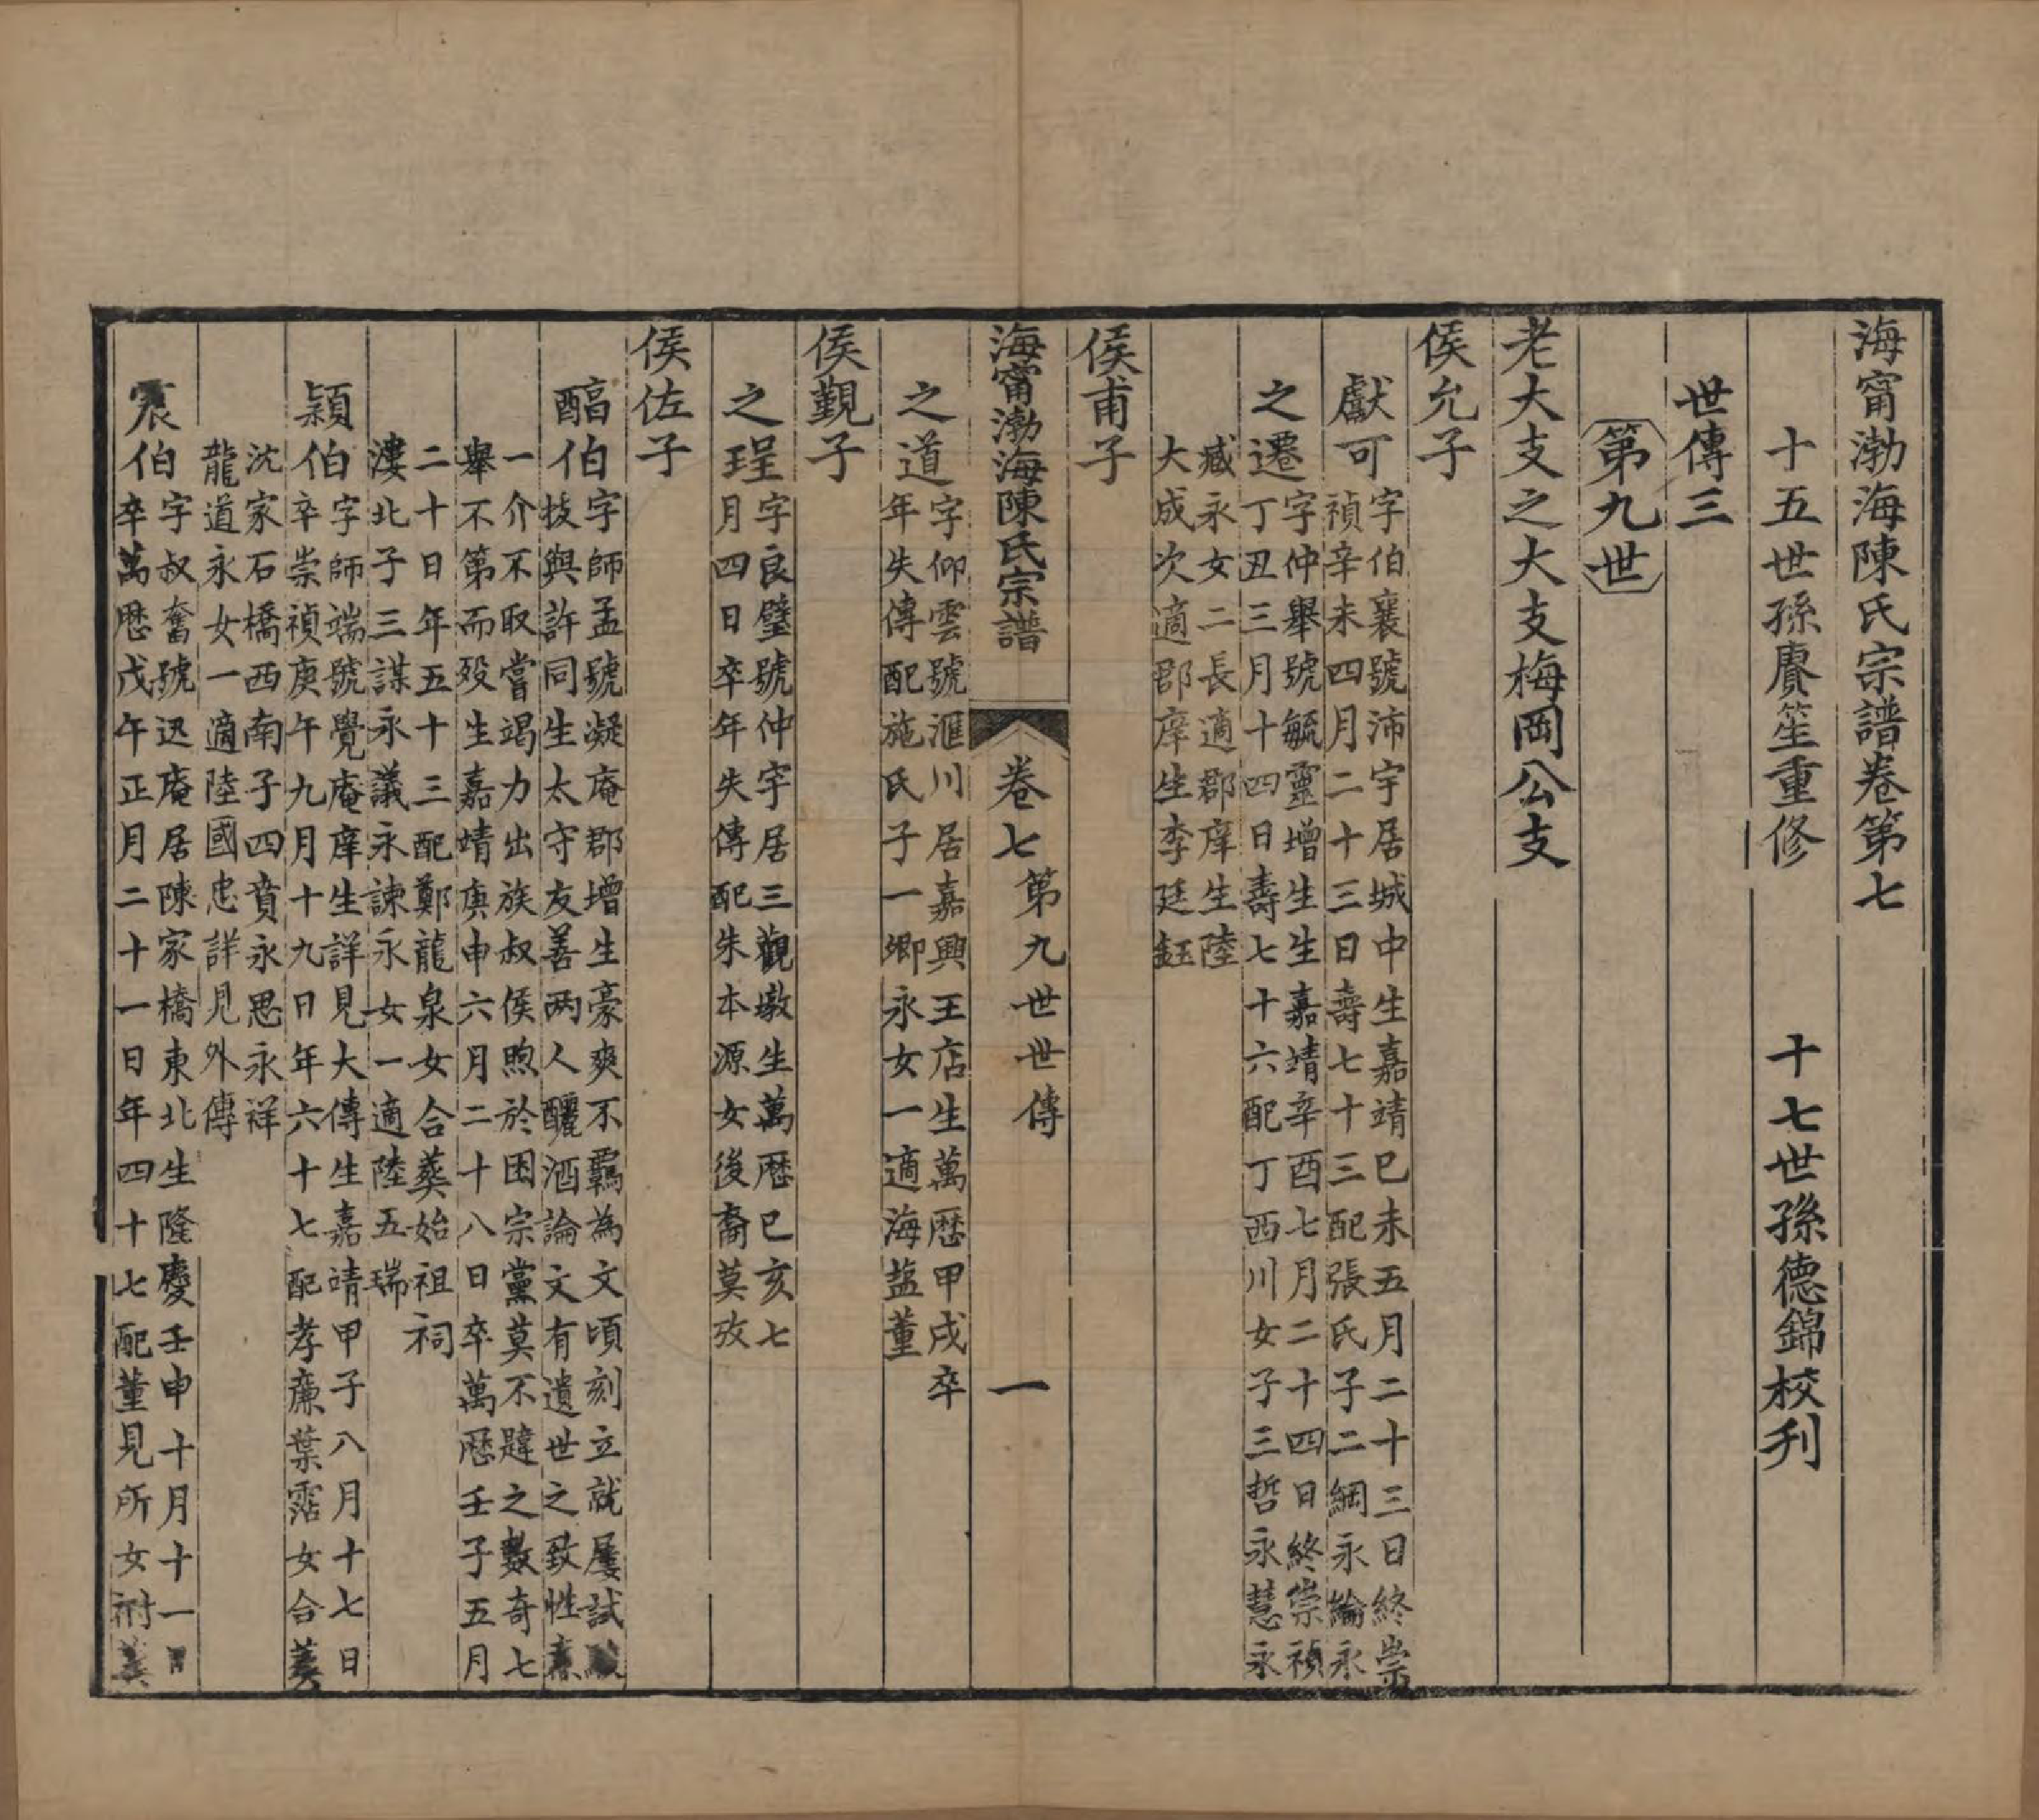 海甯渤海陳氏宗譜卷第七
十五世孫賡笙重修　十七世孫德錦校刋
世傳三
第九世
老大支之大支梅岡公支
侯允子
獻可
字伯襄號沛宇居城中生嘉靖己未五月二十三日終崇
禎辛未四月二十三日壽七十三配張氏子二綱永綸永
之遷
字仲舉號毓靈增生生嘉靖辛酉七月二十四日終崇禎
丁丑三月十四日壽七十六配丁西川女子三哲永慧永
臧永女二長適郡庠生陸
大成次適郡庠生李廷鈺
侯甫子
海甯渤海陳氏宗譜　卷七　第九世世傳　一
之道
字仰雲號滙川居嘉興王店生萬歷甲戌卒
年失傳配施氏子一卿永女一適海盐董
侯觀子
之珵
字良璧號仲宇居三觀墩生萬歷已亥七
月四日卒年失傳配朱本源女後裔莫攷
侯佐子
醕伯
字師孟號凝庵郡增生豪爽不羈為文頃刻立就屢試
技與許同生太守友善两人釃酒論文有遺世之致性
一介不取嘗竭力出族叔侯煦於困宗黨莫不韙之數奇七
舉不第而殁生嘉靖庚申六月二十八日卒萬歷壬子五月
二十日年五十三配鄭龍泉女合葬始祖祠
漊北子三謀永議永諫永女一適陸五瑞
頴伯
字師端號覺庵庠生詳見大傳生嘉靖甲子八月十七日
卒崇禎庚午九月十九日年六十七配孝廉葉霑女合葬
沈家石橋西南子四賁永思永祥
龍道永女一適陸國忠詳見外傳
宸伯
字叔奮號迅庵居陳家橋東北生隆慶壬申十月十一日
卒萬歷戊午正月二十一日年四十七配董見所女祔葬